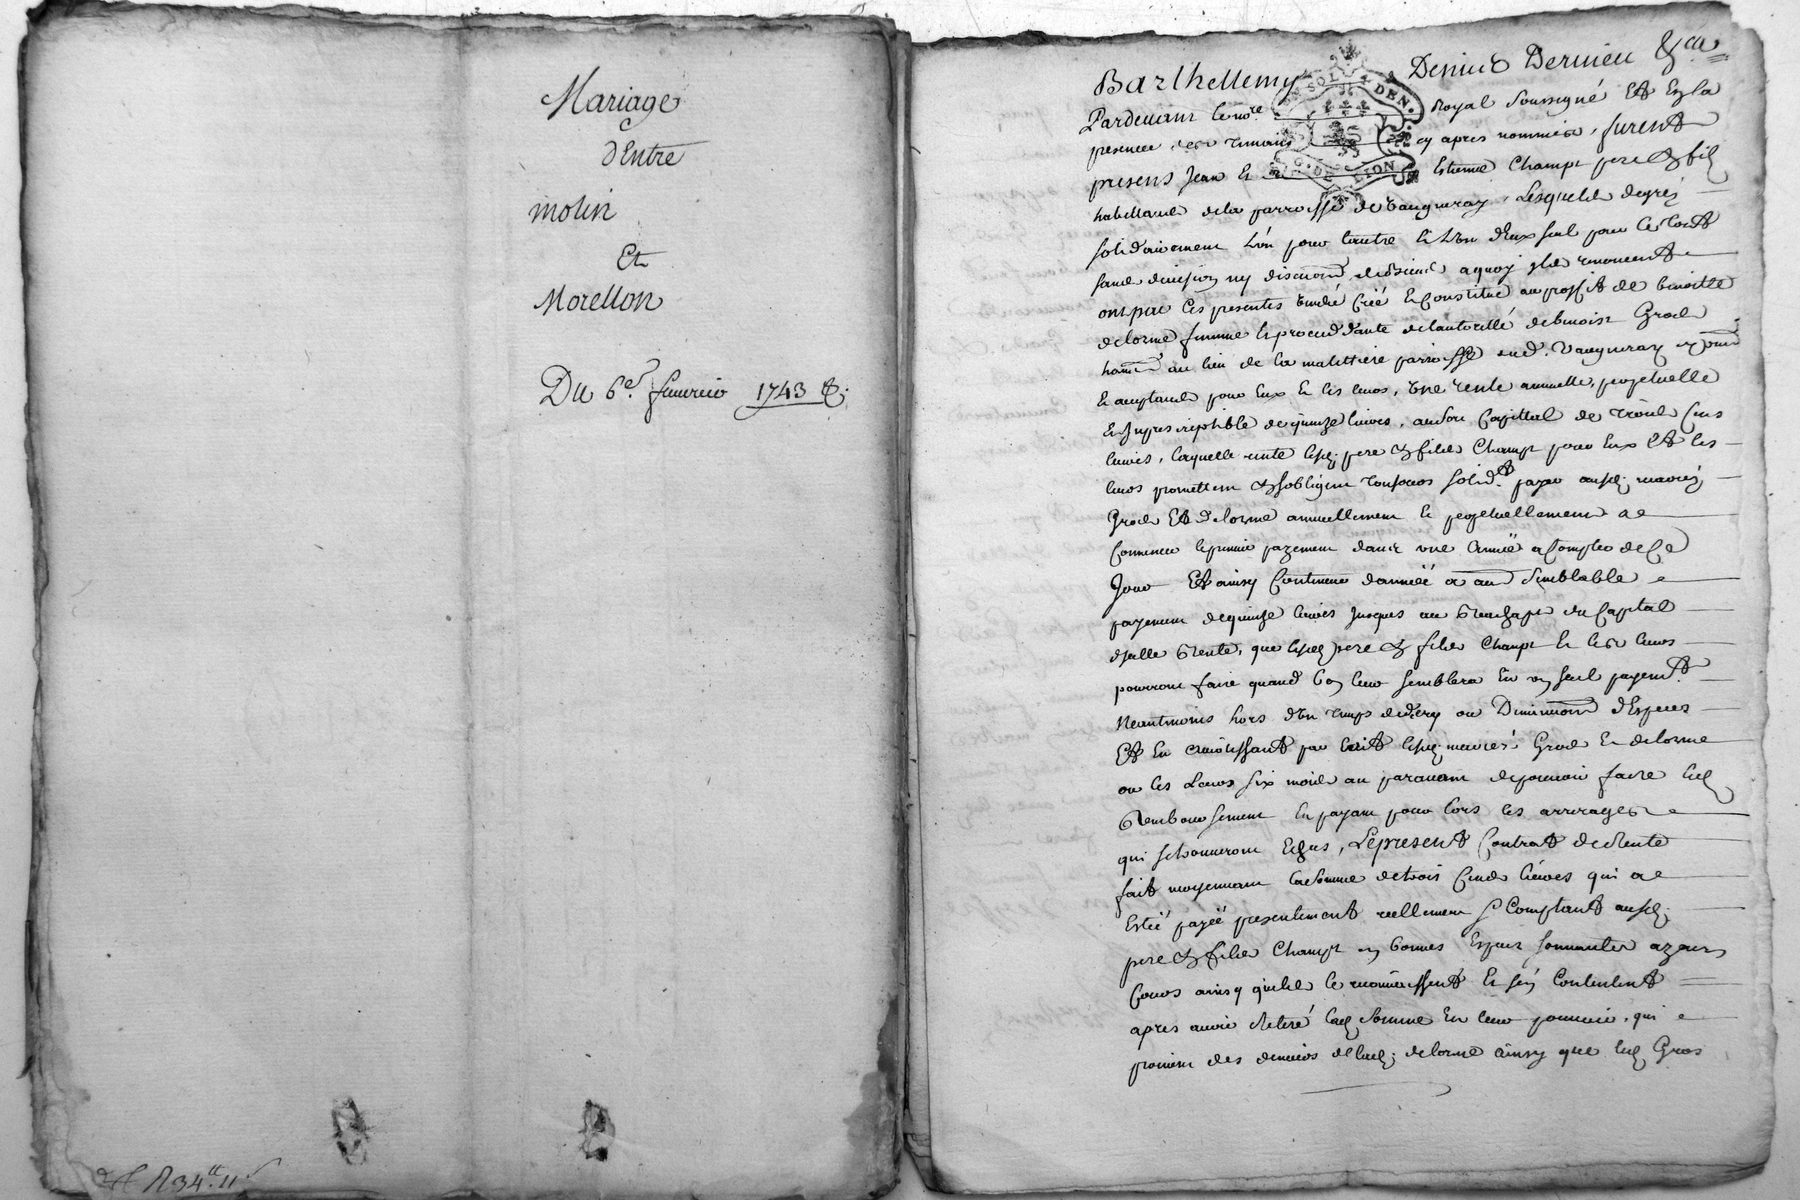 Mariage
d'Entre
molin
Et
Morellon
Du 6e. feuvrier 1743 &.
Barthellemy Denis Dernieu &ca
Pardevant le nore. Royal soussigné Et En la
presence des temoins cy apres nommés, furent
presens Jean Et Estienne Champt pere & fils
habittants de la parroisse de Vaugneray, Lesquels de gré
solidairement L'un pour l'autre Et L'un d'Eux seul pour Le tout
sans division ny discution, a quoy ils renoncent
ont par Ces presentes vendu Créé Et Constitué au proffit de benoitte
delorme femme Et procedante de l'autorité de benoist Gros
au lieu de la parroisse dud. Vaugneray
Et acceptants pour Eux Et Les leurs, une rente annuelle, perpetuelle
Et Inprescriptible de quinze livres, au Capittal de trois Cens
livres, laquelle rente lesd. pere & fils Champt pour Eux Et Les
leurs promettent & s'obligent solidt. payer ausd. mariés
Gros Et delorme annuellement Et perpetuellement a
Commencer le premier payement dans une Année a Compter de Ce
Jour Et ainsy Continuer d'année a an semblable
payement de quinze livres Jusques au Reachapt du Capital
d'jcelle Rente, que lesd. pere & fils Champt Et les leurs
pourront faire quand bon leur semblera En un seul payemt.
Neantmoins hors d'un temps de decry ou Diminution d'Especes
Et En avertissant par Ecrit lesd. mariés Gros Et delorme
ou les Leurs six mois au paravant de pouvoir faire led.
Remboursement En payant pour lors les arrerages
qui se trouveront Echus, Le present Contrat de Rente
fait moyennant la somme de trois Cents livres qui a
Esté payée presentement reellement & Comptant ausd.
pere & fils Champt en bonnes Especes sonnantes ayant
Cours ainsy qu'ils le reconnoissent Et s'en Contentent
apres avoir Retiré lad. somme En leur pouvoir, qui
provient des deniers de lad. delorme ainsy que led. Gros